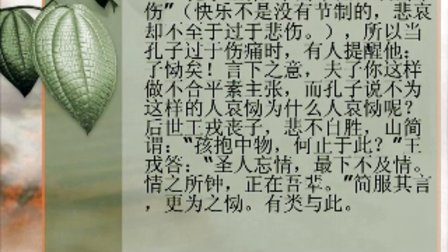 伤”（快乐不是没有节制的，悲哀
却不至于过于悲伤。），所以当
孔子过于伤痛时，有人提醒他：
了恸矣！言下之意，夫了你这样
做不合平素主张，而孔子说不为
这样的人哀恸为什么人哀恸呢？
后世王戎丧子，悲不自胜，山简
谓：“孩抱中物，何止于此？”王
戎答：“圣人忘情，最下不及情。
情之所钟，正在吾辈。”简服其言
，更为之恸。有类与此。